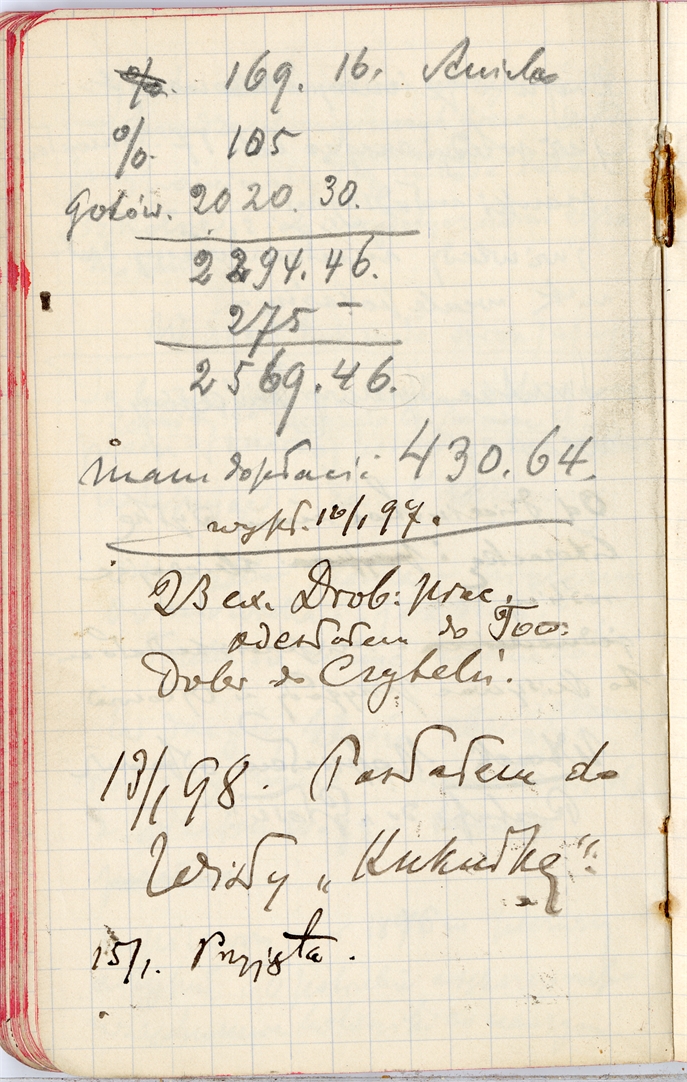 % 169. 16. Aniela
% 105
Gotów. 2020. 30.
2294. 46.
275 –
2569. 46.
mam dopłacić 430. 64.
wykł. 10/1 97.
23 ex. Drob: prac.
odesłałem do Tow:
Dobr do Czyteln.
13/1 98. Posłałem do
Wisły „Kukułkę“.
15/1. Przyjęta.